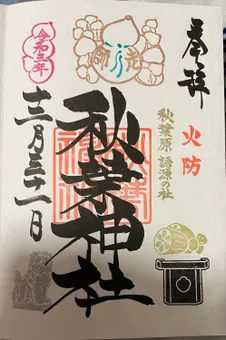 奉拝
火防
秋葉原 語源の社
秋葉神社
師走
令和三年
十二月三十一日